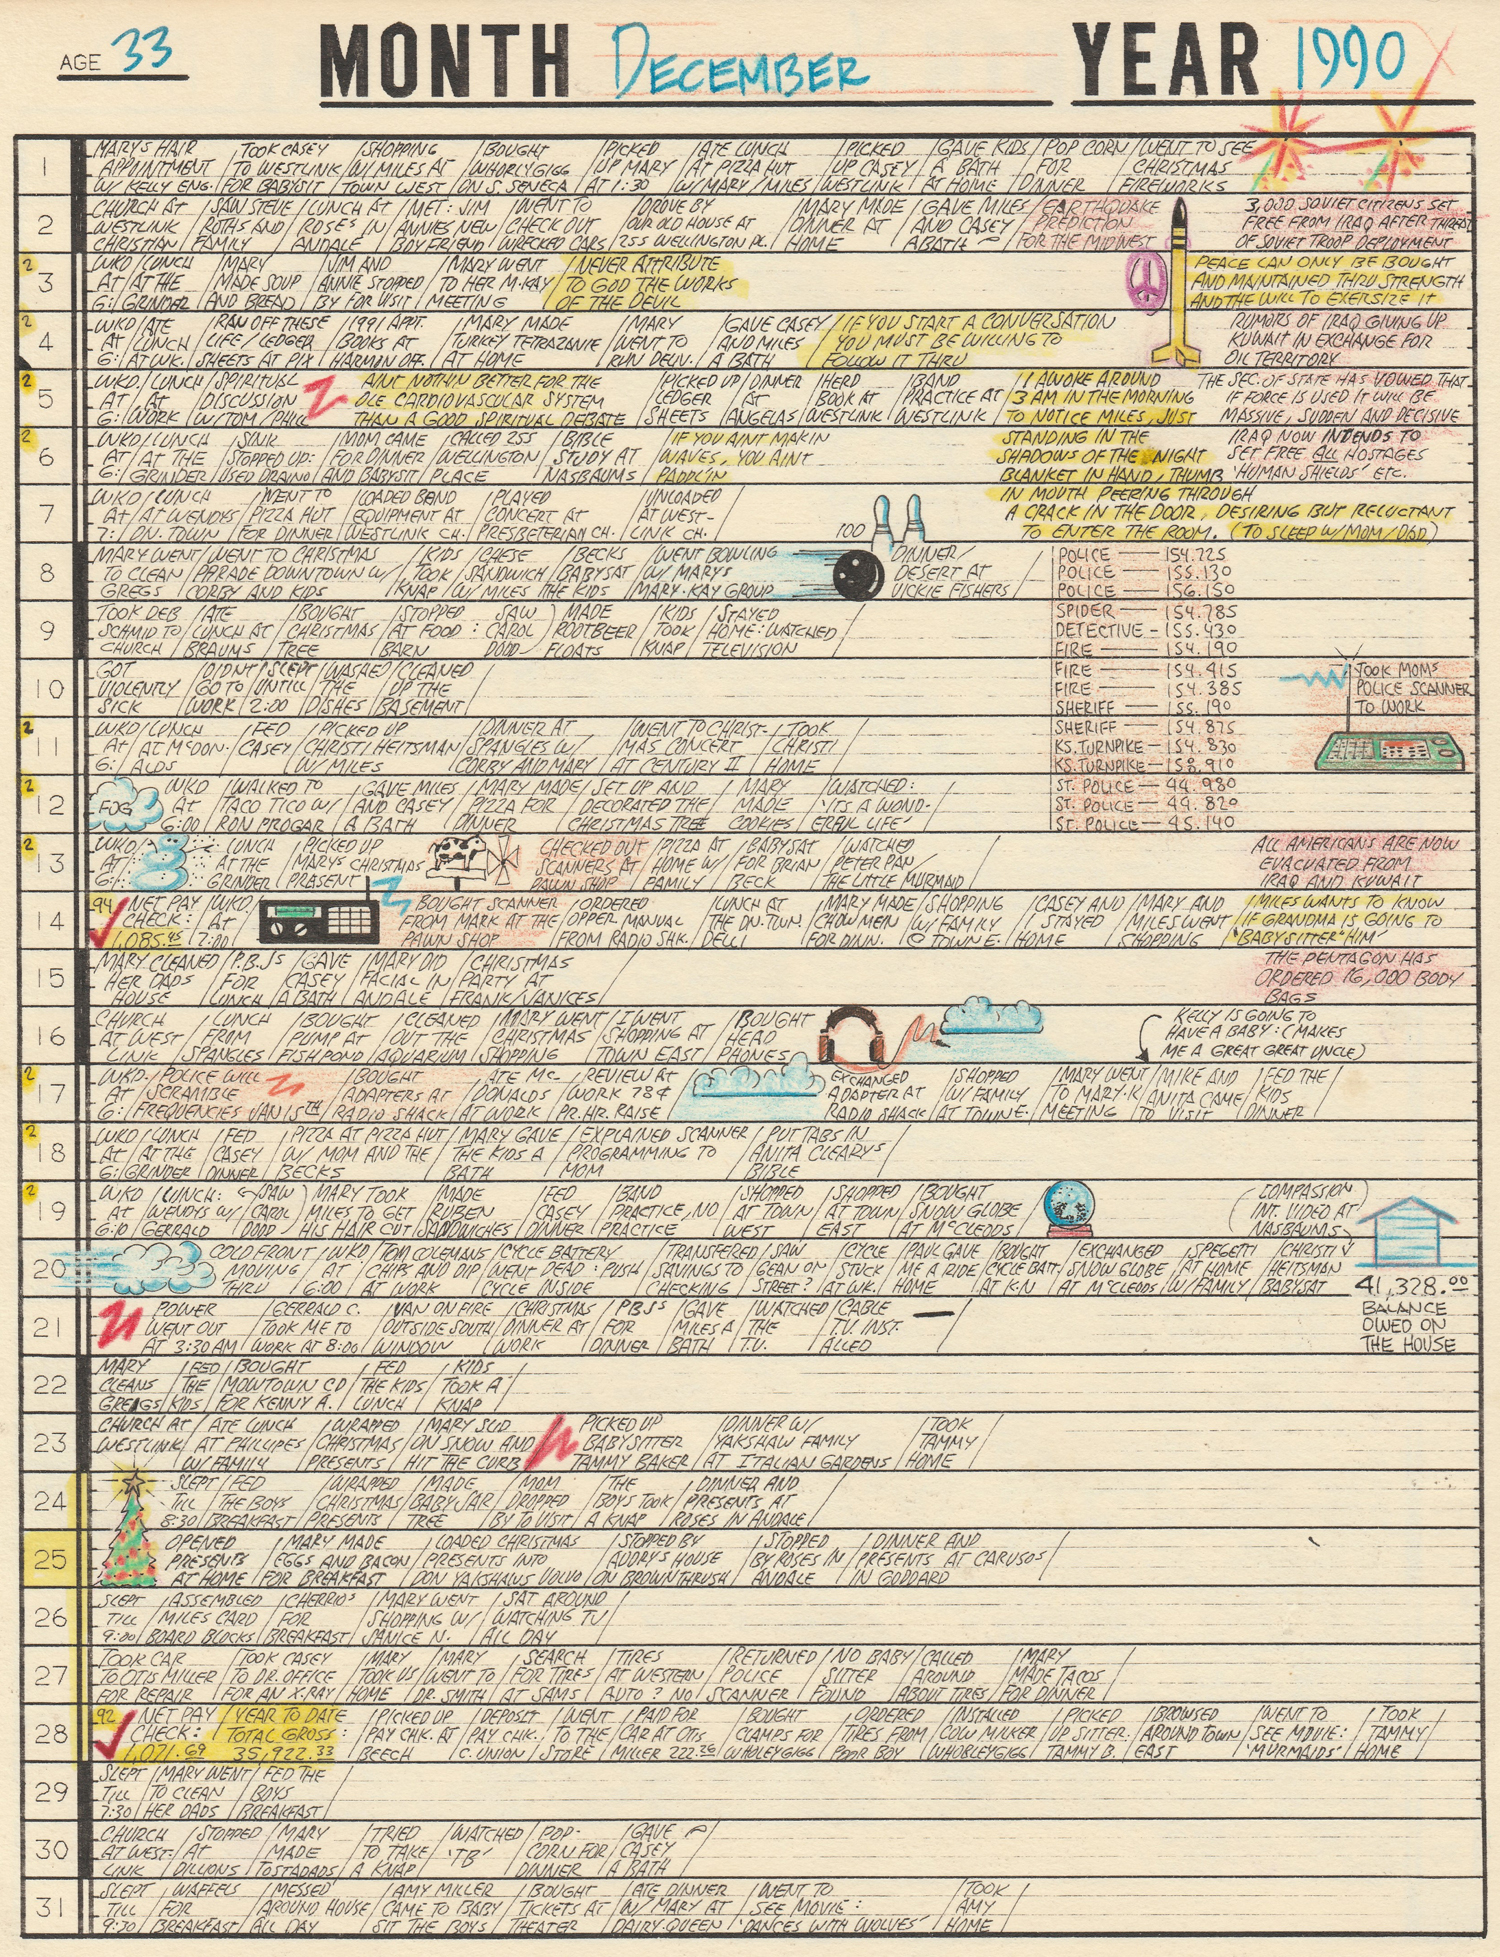 AGE 33
MONTH DECEMBER
YEAR 1990
1
MARYS HAIR
APPOINTMENT
W/ KELLY ENG.
TOOK CASEY
TO WESTLINK
FOR BABYSIT
SHOPPING
W/ MILES AT
TOWN WEST
BOUGHT
WHORLYGIGG
ON S. SENECA
PICKED
UP MARY
AT 1:30
ATE LUNCH
AT PIZZA HUT
W/ MARY/MILES
PICKED
UP CASEY
WESTLINK
GAVE KIDS
A BATH
AT HOME
POP CORN
FOR
DINNER
WENT TO SEE
CHRISTMAS
FIREWORKS
2
CHURCH AT
WESTLINK
CHRISTIAN
SAW STEVE
ROTHS AND
FAMILY
LUNCH AT
ROSES IN
ANDALE
MET: JIM
ANNIES NEW
BOYFRIEND
WENT TO
CHECK OUT
WRECKED CARS
DROVE BY
OUR OLD HOUSE AT
255 WELLINGTON PL.
MARY MADE
DINNER AT
HOME
GAVE MILES
AND CASEY
A BATH
EARTHQUAKE
PREDICTION
FOR THE MIDWEST
3,000 SOVIET CITIZENS SET
FREE FROM IRAQ AFTER THREAT
OF SOVIET TROOP DEPLOYMENT
2
3
WKD
AT
6:
LUNCH
AT THE
GRINDER
MARY
MADE SOUP
AND BREAD
JIM AND
ANNIE STOPPED
BY FOR VISIT
MARY WENT
TO HER M.KAY
MEETING
NEVER ATTRIBUTE
TO GOD THE WORKS
OF THE DEVIL
PEACE CAN ONLY BE BOUGHT
AND MAINTAINED THRU STRENGTH
AND THE WILL TO EXERSIZE IT
2
4
WKD
AT
6:
ATE
LUNCH
AT WK.
RAN OFF THESE
LIFE/LEDGER
SHEETS AT PIX
1991 APPT.
BOOKS AT
HARMON OFF.
MARY MADE
TURKEY TETRAZANIE
AT HOME
MARY
WENT TO
RUN DELIV.
GAVE CASEY
AND MILES
A BATH
IF YOU START A CONVERSATION
YOU MUST BE WILLING TO
FOLLOW IT THRU
RUMORS OF IRAQ GIVING UP
KUWAIT IN EXCHANGE FOR
OIL TERRITORY
2
5
WKD.
AT
6:
LUNCH
AT
WORK
SPIRITUAL
DISCUSSION
W/TOM/PHIL
AINT NOTHIN BETTER FOR THE
OLE CARDIOVASCULAR SYSTEM
THAN A GOOD SPIRITUAL DEBATE
PICKED UP
LEDGER
SHEETS
DINNER
AT
ANGELAS
HERD
BOOK AT
WESTLINK
BAND
PRACTICE AT
WESTLINK
I AWOKE AROUND
3 AM IN THE MORNING
TO NOTICE MILES, JUST
THE SEC. OF STATE HAS VOWED THAT
IF FORCE IS USED IT WILL BE
MASSIVE, SUDDEN AND DECISIVE
2
6
WKD
AT
6:
LUNCH
AT THE
GRINDER
SINK
STOPPED UP:
USED DRAINO
MOM CAME
FOR DINNER
AND BABYSIT
CALLED 255
WELLINGTON
PLACE
BIBLE
STUDY AT
NASBAUMS
IF YOU AINT MAKIN
WAVES, YOU AINT
PADDL'IN
STANDING IN THE
SHADOWS OF THE NIGHT
BLANKET IN HAND, THUMB
IRAQ NOW INTENDS TO
SET FREE ALL HOSTAGES
'HUMAN SHIELDS' ETC.
7
WKD
AT
7:
LUNCH
AT WENDYS
DN. TOWN
WENT TO
PIZZA HUT
FOR DINNER
LOADED BAND
EQUIPMENT AT
WESTLINK CH.
PLAYED
CONCERT AT
PRESBETERIAN CH.
UNLOADED
AT WEST-
LINK CH.
100
IN MOUTH PEERING THROUGH
A CRACK IN THE DOOR, DESIRING BUT RELUCTANT
TO ENTER THE ROOM. (TO SLEEP W/ MOM/DAD)
8
MARY WENT
TO CLEAN
GREGS
WENT TO CHRISTMAS
PARADE DOWNTOWN W/
CORBY AND KIDS
KIDS
TOOK
KNAP
CHESE
SANDWICH
W/ MILES
BECKS
BABYSAT
THE KIDS
WENT BOWLING
W/ MARYS
MARY-KAY GROUP
DINNER/
DESERT AT
VICKIE FISHERS
POLICE 154.725
POLICE 155.130
POLICE 156.150
9
TOOK DEB
SCHMID TO
CHURCH
ATE
LUNCH AT
BRAUMS
BOUGHT
CHRISTMAS
TREE
STOPPED
AT FOOD:
BARN
SAW
CAROL
DODD
MADE
ROOTBEER
FLOATS
KIDS
TOOK
KNAP
STAYED
HOME: WATCHED
TELEVISION
SPIDER 154.785
DETECTIVE - 155.430
FIRE 154.190
10
GOT
VIOLENTLY
SICK
DIDNT
GO TO
WORK
SLEPT
UNTILL
2:00
WASHED
THE
DISHES
CLEANED
UP THE
BASEMENT
FIRE 154.415
FIRE 154.385
SHERIFF 155.190
TOOK MOMS
POLICE SCANNER
TO WORK
2
11
WKD
AT
6:
LUNCH
AT McDON-
ALDS
FED
CASEY
PICKED UP
CHRISTI HEITSMAN
W/ MILES
DINNER AT
SPANGLES W/
CORBY AND MARY
WENT TO CHRIST-
MAS CONCERT
AT CENTURY II
TOOK
CHRISTI
HOME
SHERIFF 154.875
KS. TURNPIKE - 154.830
KS. TURNPIKE - 158.910
2
12
FOG
WKD
AT
6:00
WALKED TO
TACO TICO W/
RON PROGAR
GAVE MILES
AND CASEY
A BATH
MARY MADE
PIZZA FOR
DINNER
SET UP AND
DECORATED THE
CHRISTMAS TREE
MARY
MADE
COOKIES
WATCHED:
'ITS A WOND-
ERFUL LIFE'
ST. POLICE 44.980
ST. POLICE 44.820
ST. POLICE 45.140
2
13
WKD
AT
6:
LUNCH
AT THE
GRINDER
PICKED UP
MARYS CHRISTMAS
PRESENT
CHECKED OUT
SCANNERS AT
PAWN SHOP
PIZZA AT
HOME W/
FAMILY
BABYSAT
FOR BRIAN
BECK
WATCHED
PETER PAN/
THE LITTLE MURMAID
ALL AMERICANS ARE NOW
EVACUATED FROM
IRAQ AND KUWAIT
14
94 NET PAY
CHECK:
1,085.45
WKD
AT
7:00
BOUGHT SCANNER
FROM MARK AT THE
PAWN SHOP
ORDERED
OPPER MANUAL
FROM RADIO SHK.
LUNCH AT
THE DN. TWN.
DELLI
MARY MADE
CHOW MEN
FOR DINN.
SHOPPING
W/ FAMILY
@ TOWN E.
CASEY AND
STAYED
HOME
MARY AND
MILES WENT
SHOPPING
MILES WANTS TO KNOW
IF GRANDMA IS GOING TO
"BABY SITTER HIM"
15
MARY CLEANED
HER DADS
HOUSE
P.B.JS
FOR
LUNCH
GAVE
CASEY
A BATH
MARY DID
FACIAL IN
ANDALE
CHRISTMAS
PARTY AT
FRANK/VANICES
THE PENTAGON HAS
ORDERED 16,000 BODY
BAGS
16
CHURCH
AT WEST
LINK
LUNCH
FROM
SPANGLES
BOUGHT
PUMP AT
FISH POND
CLEANED
OUT THE
AQUARIUM
MARY WENT
CHRISTMAS
SHOPPING
I WENT
SHOPPING AT
TOWN EAST
BOUGHT
HEAD
PHONES
KELLY IS GOING TO
HAVE A BABY: (MAKES
ME A GREAT GREAT UNCLE)
2
17
WKD.
AT
6:
POLICE WILL
SCRAMBLE
FREQUENCIES JAN 15TH
BOUGHT
ADAPTERS AT
RADIO SHACK
ATE Mc-
DONALDS
AT WORK
REVIEW AT
WORK 78¢
PR. HR. RAISE
EXCHANGED
ADAPTER AT
RADIO SHACK
SHOPPED
W/ FAMILY
AT TOWN E.
MARY WENT
TO MARY.K
MEETING
MIKE AND
ANITA CAME
TO VISIT
FED THE
KIDS
DINNER
2
18
WKD
AT
6:
LUNCH
AT THE
GRINDER
FED
CASEY
DINNER
PIZZA AT PIZZA HUT
W/ MOM AND THE
BECKS
MARY GAVE
THE KIDS A
BATH
EXPLAINED SCANNER
PROGRAMMING TO
MOM
PUT TABS IN
ANITA CLEARYS
BIBLE
2
19
WKD
AT
6:10
LUNCH:
WENDYS W/
GERRALD
SAW
CAROL
DODD
MARY TOOK
MILES TO GET
HIS HAIR CUT
MADE
RUBEN
SANDWICHES
FED
CASEY
DINNER
BAND
PRACTICE, NO
PRACTICE
SHOPPED
AT TOWN
WEST
SHOPPED
AT TOWN
EAST
BOUGHT
SNOW GLOBE
AT McCLEODS
(COMPASSION
INT. VIDEO AT
NASBAUMS)
20
COLD FRONT
MOVING
THRU
WKD
AT
6:00
TOM COLEMANS
CHIPS AND DIP
AT WORK
CYCLE BATTERY
WENT DEAD: PUSH
CYCLE INSIDE
TRANSFERED
SAVINGS TO
CHECKING
SAW
GEAN ON
STREET?
CYCLE
STUCK
AT WK.
PAUL GAVE
ME A RIDE
HOME
BOUGHT
CYCLE BATT.
AT K-N
EXCHANGED
SNOW GLOBE
AT McCLEODS
SPEGETTI
AT HOME
W/ FAMILY
CHRISTI
HEITSMAN
BABYSAT
41,328.00
BALANCE
OWED ON
THE HOUSE
21
POWER
WENT OUT
AT 3:30 AM
GERRALD C.
TOOK ME TO
WORK AT 8:00
VAN ON FIRE
OUTSIDE SOUTH
WINDOW
CHRISTMAS
DINNER AT
WORK
PBJS
FOR
DINNER
GAVE
MILES A
BATH
WATCHED
THE
T.V.
CABLE
T.V. INST.
ALLED
22
MARY
CLEANS
GREGS
FED
THE
KIDS
BOUGHT
MOWTOWN CD
FOR KENNY A.
FED
THE KIDS
LUNCH
KIDS
TOOK A
KNAP
23
CHURCH AT
WESTLINK
W/ FAMILY
ATE LUNCH
AT PHILLIPES
WRAPPED
CHRISTMAS
PRESENTS
MARY SLID
ON SNOW AND
HIT THE CURB
PICKED UP
BABYSITTER
TAMMY BAKER
DINNER W/
YAKSHAW FAMILY
AT ITALIAN GARDENS
TOOK
TAMMY
HOME
24
SLEPT
TILL
8:30
FED
THE BOYS
BREAKFAST
WRAPPED
CHRISTMAS
PRESENTS
MADE
BABY JAR
TREE
MOM
DROPPED
BY TO VISIT
THE
BOYS TOOK
A KNAP
DINNER AND
PRESENTS AT
ROSES IN ANDALE
25
OPENED
PRESENTS
AT HOME
MARY MADE
EGGS AND BACON
FOR BREAKFAST
LOADED CHRISTMAS
PRESENTS INTO
DON YAKSHAWS VOLVO
STOPPED BY
AUDRYS HOUSE
ON BROWNTHRUSH
STOPPED
BY ROSES IN
ANDALE
DINNER AND
PRESENTS AT CARUSOS
IN GODDARD
26
SLEPT
TILL
9:00
ASSEMBLED
MILES CARD
BOARD BLOCKS
CHERRIOS
FOR
BREAKFAST
MARY WENT
SHOPPING W/
JANICE N.
SAT AROUND
WATCHING TV
ALL DAY
27
TOOK CAR
TO OTIS MILLER
FOR REPAIR
TOOK CASEY
TO DR. OFFICE
FOR AN X-RAY
MARY
TOOK US
HOME
MARY
WENT TO
DR. SMITH
SEARCH
FOR TIRES
AT SAMS
TIRES
AT WESTERN
AUTO? NO
RETURNED
POLICE
SCANNER
NO BABY
SITTER
FOUND
CALLED
AROUND
ABOUT TIRES
MARY
MADE TACOS
FOR DINNER
28
92 NET PAY
CHECK:
1,071.69
YEAR TO DATE
TOTAL GROSS:
35,922.33
PICKED UP
PAY CHK. AT
BEECH
DEPOSIT
PAY CHK.
C. UNION
WENT
TO THE
STORE
PAID FOR
CAR AT OTIS
MILLER 222.26
BOUGHT
CLAMPS FOR
WHOLEYGIGG
ORDERED
TIRES FROM
POOR BOY
INSTALLED
COW MILKER
WHOLEYGIGG
PICKED
UP SITTER:
TAMMY B.
BROWSED
AROUND TOWN
EAST
WENT TO
SEE MOVIE:
'MURMAIDS'
TOOK
TAMMY
HOME
29
SLEPT
TILL
7:30
MARY WENT
TO CLEAN
HER DADS
FED THE
BOYS
BREAKFAST
30
CHURCH
AT WEST-
LINK
STOPPED
AT
DILLIONS
MARY
MADE
TOSTADADS
TRIED
TO TAKE
A KNAP
WATCHED
'TB'
POP-
CORN FOR
DINNER
GAVE
CASEY
A BATH
31
SLEPT
TILL
9:30
WAFFELS
FOR
BREAKFAST
MESSED
AROUND HOUSE
ALL DAY
AMY MILLER
CAME TO BABY
SIT THE BOYS
BOUGHT
TICKETS AT
THEATER
ATE DINNER
W/ MARY AT
DAIRY-QUEEN
WENT TO
SEE MOVIE:
'DANCES WITH WOLVES'
TOOK
AMY
HOME